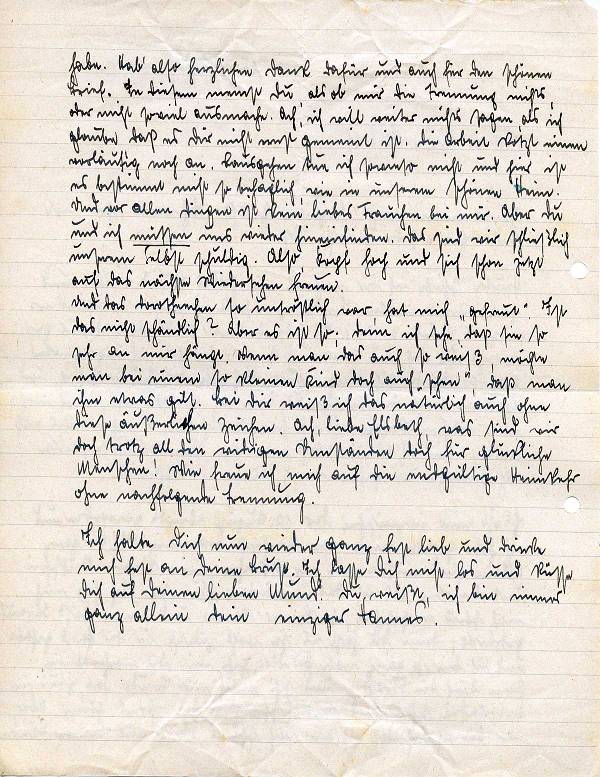 habe. Hab' also herzlichen Dank dafür und auch für den schönen
Brief. In diesem meinst Du, als ob mir die Trennung nichts
oder nicht soviel ausmache. Ach, ich will weiter nichts sagen, als ich
glaube, daß es Dir nicht ernst gemeint ist. Die Arbeit kotzt einem
vorläufig noch an. Ausgehen tue ich sowieso nicht und hier ist
es bestimmt nicht so behaglich, wie in unserem schönen Heim.
Und vor allen Dingen ist kein liebes Frauchen bei mir. Aber Du
und ich müssen uns wieder hineinfinden. Das sind wir schließlich
unserem selbst schuldig. Also Kopf hoch und sich schon jetzt
auf das nächste Wiedersehen freuen.
Und das Dorothechen so untröstlich war, hat mich „gefreut". Ist
das nicht schändlich? Aber es ist so; denn ich sehe, daß sie so
sehr an mir hängt. Wenn man das auch so weiß, möchte
man bei einem so kleinen Kind doch auch „sehen" daß man
ihm etwas gilt. Bei Dir weiß ich das natürlich auch ohne
diese äußerlichen Zeichen. Ach, liebe Elsbeth, was sind wir
doch trotz all den widrigen Umständen doch für glückliche
Menschen! Wie freue ich mich auf die endgültige Heimkehr
ohne nachfolgende Trennung.
Ich halte Dich nun wieder ganz fest lieb und drücke
mich fest an Deine Brust. Ich lasse Dich nicht los und küsse
Dich auf Deinen lieben Mund. Du weißt, ich bin immer
ganz allein Dein einziger Hannes.